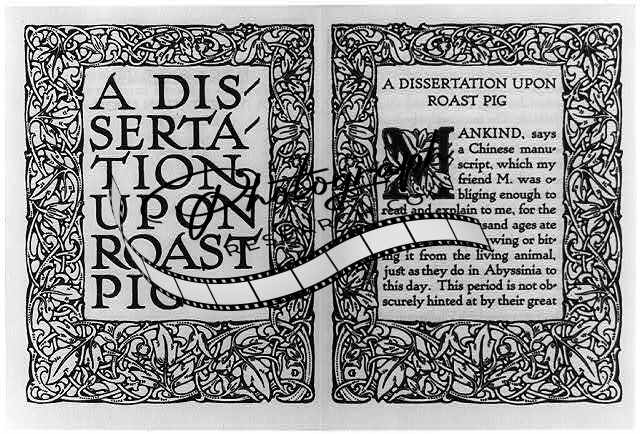 A DIS-
SERTA-
TION
UPON
ROAST
PIG
A DISSERTATION UPON
ROAST PIG
MANKIND, says
a Chinese manu-
script, which my
friend M. was o-
bliging enough to
read and explain to me, for the
ages ate
or bit-
ing it from the living animal,
just as they do in Abyssinia to
this day. This period is not ob-
scurely hinted at by their great